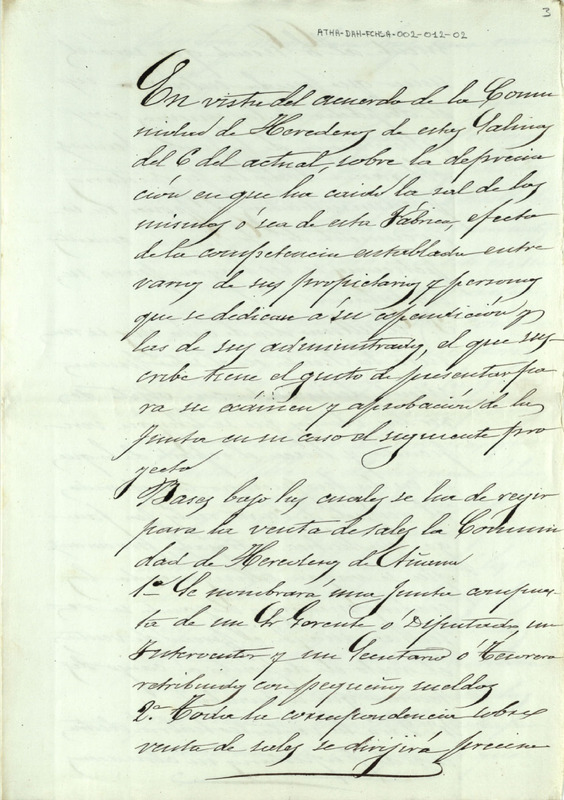 3
ATHA-DAH-FCHSA-002-012-02
En vista del acuerdo de la Comu
nidad de Herederos de estas Salinas
del 6 del actual, sobre la deprecia
ción en que ha caido la sal de las
mismas ó sea de esta Fábrica, efecto
de la competencia entablada entre
varios de sus propietarios y personas
que se dedican a su espendición y
las de sus administrados, el que sus-
cribe tiene el gusto de presentar pa
ra su exámen y aprobación de la
Junta en su caso el siguiente pro
yecto
Bases bajo las cuales se ha de regir
para la venta de sales la Comuni
dad de Herederos de Añana
1ª Se nombrará una Junta compues
ta de un Sr Gerente ó Diputado, un
Interventor y un Secretario ó Tesorero
retribuidos con pequeños sueldos
2ª Toda la correspondencia sobre
venta de sales se dirijirá precisa